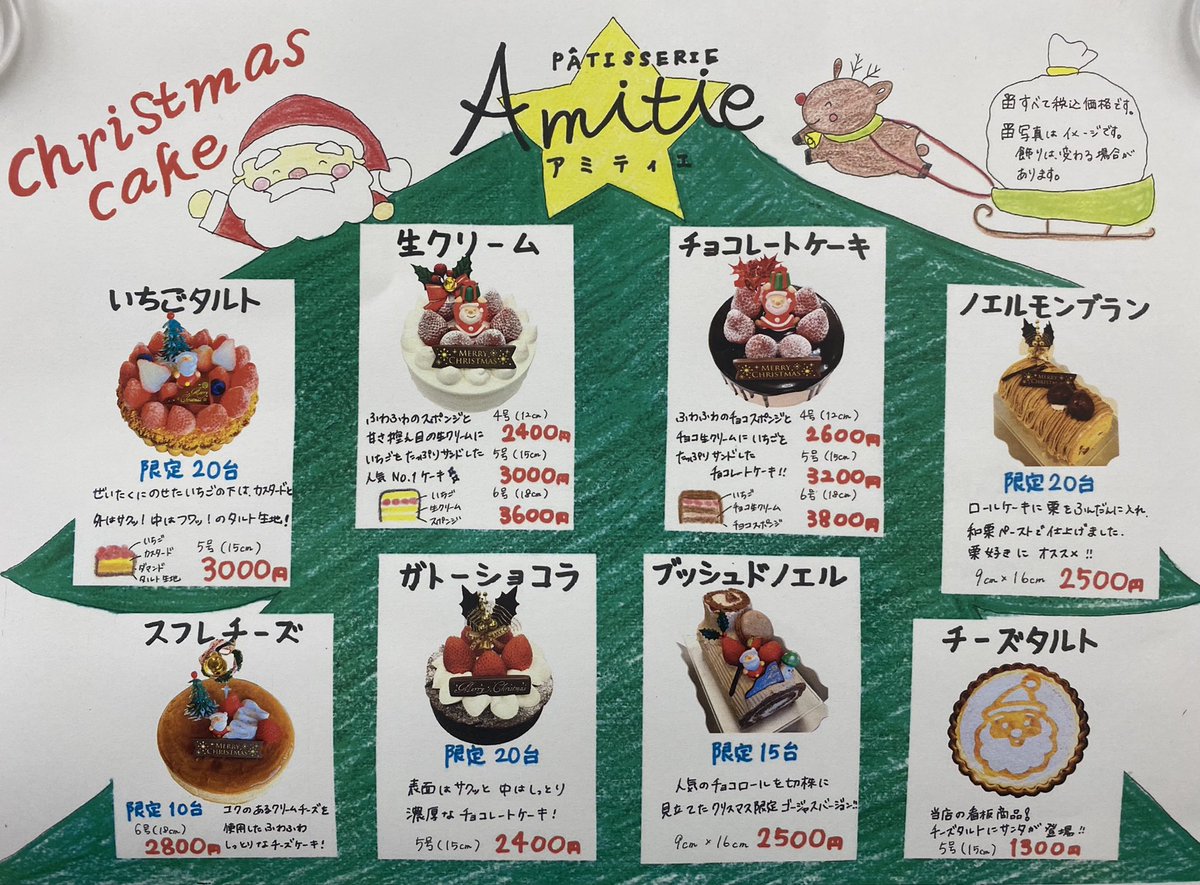 Christmas
cake
PÂTISSERIE
Amitie
アミティエ
※すべて税込価格です。
※写真はイメージです。
飾りは、変わる場合が
あります。
いちごタルト
限定20台
ぜいたくにのせたいちごの下は、カスタードと
外はサクッ!中はフワッ!のタルト生地!
いちご
カスタード
ダマンド
タルト生地
5号(15cm)
3000円
生クリーム
MERRY
CHRISTMAS
ふわふわのスポンジと
甘さ控え目の生クリームに
いちごをたっぷりサンドした
人気No.1ケーキ
いちご
生クリーム
スポンジ
4号(12cm)
2400円
5号(15cm)
3000円
6号(18cm)
3600円
チョコレートケーキ
MERRY
CHRISTMAS
ふわふわのチョコスポンジと
チョコ生クリームにいちごを
たっぷりサンドした
チョコレートケーキ!!
いちご
チョコ生クリーム
チョコスポンジ
4号(12cm)
2600円
5号(15cm)
3200円
6号(18cm)
3800円
ノエルモンブラン
限定20台
ロールケーキに栗をふんだんに入れ、
和栗ペーストで仕上げました。
栗好きにオススメ!!
9cm×16cm 2500円
スフレチーズ
MERRY
CHRISTMAS
限定10台
6号(18cm)
2800円
コクのあるクリームチーズを
使用したふわふわ
しっとりなチーズケーキ!
ガトーショコラ
Merry Christmas
限定20台
表面はサクッと中はしっとり
濃厚なチョコレートケーキ!
5号(15cm) 2400円
ブッシュドノエル
限定15台
人気のチョコロールを切株に
見立てたクリスマス限定ゴージャスバージョン!!
9cm×16cm 2500円
チーズタルト
当店の看板商品
チーズタルトにサンタが登場!!
5号(15cm) 1300円